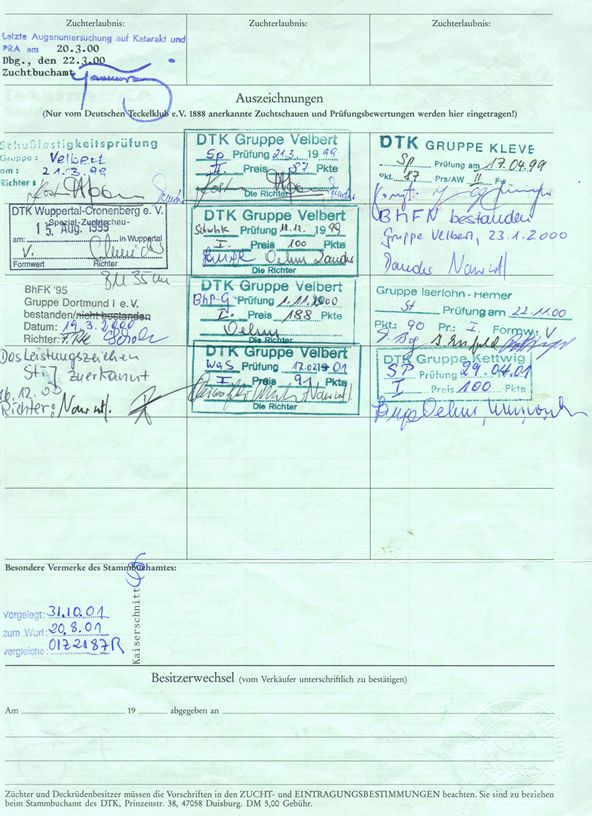 Zuchterlaubnis:
Zuchterlaubnis:
Zuchterlaubnis:
Letzte Augenuntersuchung auf Katarakt und
PRA am 20.3.00
Dbg., den 22.3.00
Zuchtbuchamt
Auszeichnungen
(Nur vom Deutschen Teckelklub e.V. 1888 anerkannte Zuchtschauen und Prüfungsbewertungen werden hier eingetragen!)
Schußfestigkeitsprüfung
Gruppe: Velbert
am: 21.3.99
Richter:
DTK Gruppe Velbert
Sp Prüfung 21.3. 19 99
II Preis 87 Pkte
Die Richter
DTK GRUPPE KLEVE
Sp Prüfung am 17.04.99
Pkt. 87 Prs/AW II Fw
DTK Wuppertal-Cronenberg e. V.
Spezial-Zuchtschau-
am: 15. Aug. 1999 in Wuppertal
V.
Formwert Richter
DTK Gruppe Velbert
Schwhk Prüfung 11.12. 19 99
I. Preis 100 Pkte
Die Richter
BhFN bestanden
Gruppe Velbert, 23.1.2000
BhFK '95
Gruppe Dortmund I e. V.
bestanden/nicht bestanden
Datum: 19.3.2000
Richter:
DTK Gruppe Velbert
BhP-G Prüfung 1.11.2000
I. Preis 188 Pkte
Oehm
Die Richter
Gruppe Iserlohn - Hemer
St Prüfung am 22.11.00
Pkt.: 90 Pr.: I. Formw.: V
Das Leistungszeichen
zuerkannt
16.12.
Richter:
DTK Gruppe Velbert
WaS Prüfung 17.02.01
I Preis 91 Pkte
Die Richter
DTK Gruppe Kettwig
SP Prüfung 29.04.01
I Preis 100 Pkte
Besondere Vermerke des Stammbuchamtes:
Kaiserschnitt
Vorgelegt: 31.10.01
zum Wurf: 20.8.01
vergleiche: 0172187R
Besitzerwechsel (vom Verkäufer unterschriftlich zu bestätigen)
Am 19 abgegeben an
Züchter und Deckrüdenbesitzer müssen die Vorschriften in den ZUCHT- und EINTRAGUNGSBESTIMMUNGEN beachten. Sie sind zu beziehen
beim Stammbuchamt des DTK, Prinzenstr. 38, 47088 Duisburg. DM 5,00 Gebühr.